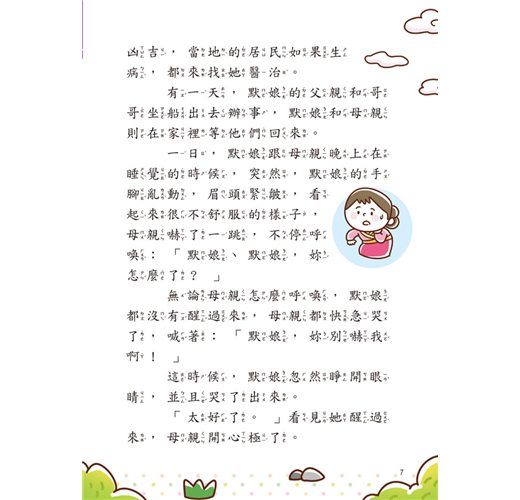 凶吉，當地的居民如果生
病，都來找她醫治。
有一天，默娘的父親和哥
哥坐船出去辦事，默娘和母親
則在家裡等他們回來。
一日，默娘跟母親晚上在
睡覺的時候，突然，默娘的手
腳亂動，眉頭緊皺，看
起來很不舒服的樣子，
母親嚇了一跳，不停呼
喚：「默娘、默娘，妳
怎麼了？」
無論母親怎麼呼喚，默娘
都沒有醒過來，母親都快急哭
了，喊著：「默娘，妳別嚇我
啊！」
這時候，默娘忽然睜開眼
睛，並且哭了出來。
「太好了。」看見她醒過
來，母親開心極了。
7